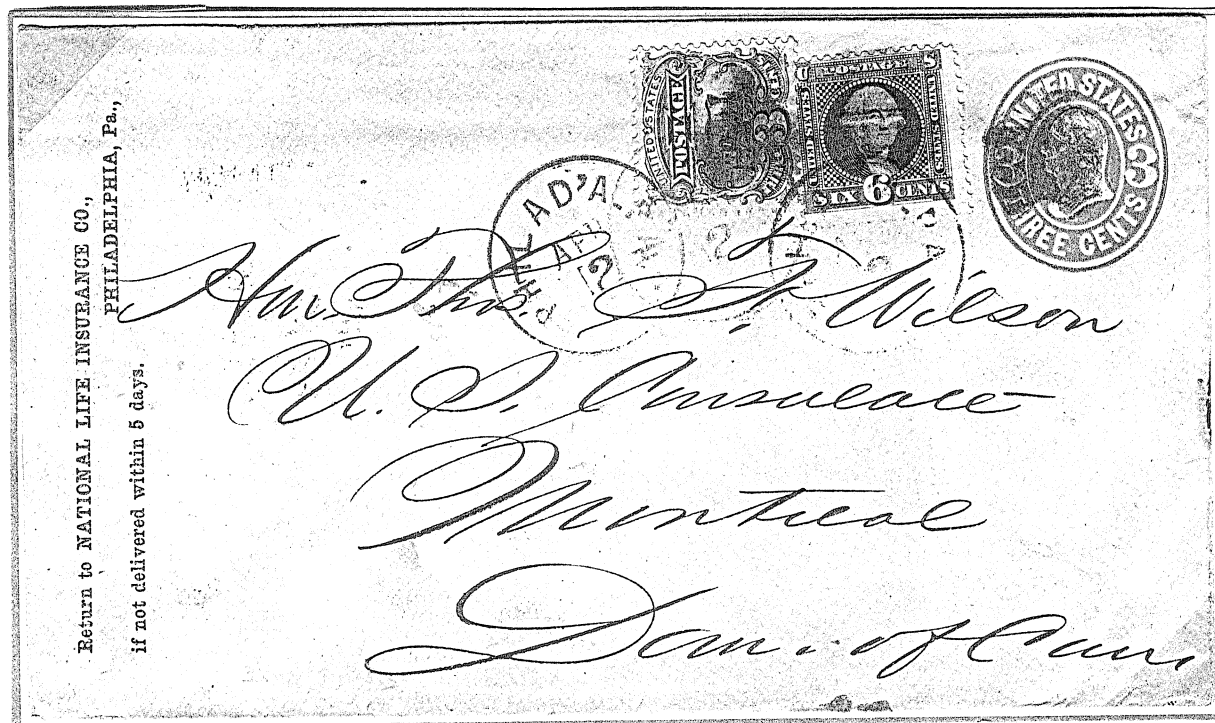 Return to NATIONAL LIFE INSURANCE CO.,
PHILADELPHIA, Pa.,
if not delivered within 5 days.
UNITED STATES
POSTAGE
3
U S
POSTAGE
SIX 6 CENTS
UNITED STATES
3 3
THREE CENTS
PHILAD'A
APR
2
Hon. Thos. F. Wilson
U. S. Consulate
Montreal
Dom. of Can.